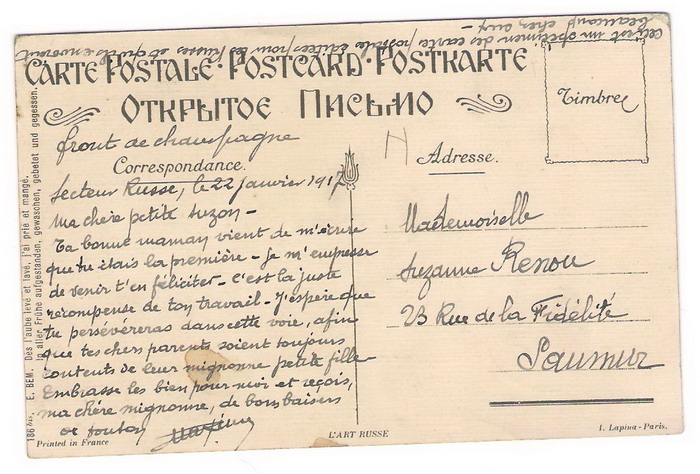 c'est un spécimen des cartes postales éditées pour les russes et qu'ils envoient
beaucoup chez eux -
CARTE POSTALE · POSTCARD · POSTKARTE
ОТКРЫТОЕ ПИСЬМО
Timbre
front de champagne
Correspondance.
Secteur Russe, le 22 janvier 1917
Ma chère petite Suzon -
Ta bonne maman vient de m'écrire
que tu étais la première - Je m'empresse
de venir t'en féliciter - C'est la juste
récompense de ton travail - J'espère que
tu persévèreras dans cette voie, afin
que tes chers parents soient toujours
contents de leur mignonne petite fille
Embrasse les bien pour moi et reçois,
ma chère mignonne, de bons baisers
de tonton
H
Adresse.
Mademoiselle
Suzanne Renou
23 Rue de la Fidélité
Saumur
186 bis. E. BEM. Dès l'aube levé et lavé, j'ai prié et mangé.
In aller Frühe aufgestanden, gewaschen, gebetet und gegessen.
Printed in France
L'ART RUSSE
I. Lapina - Paris.